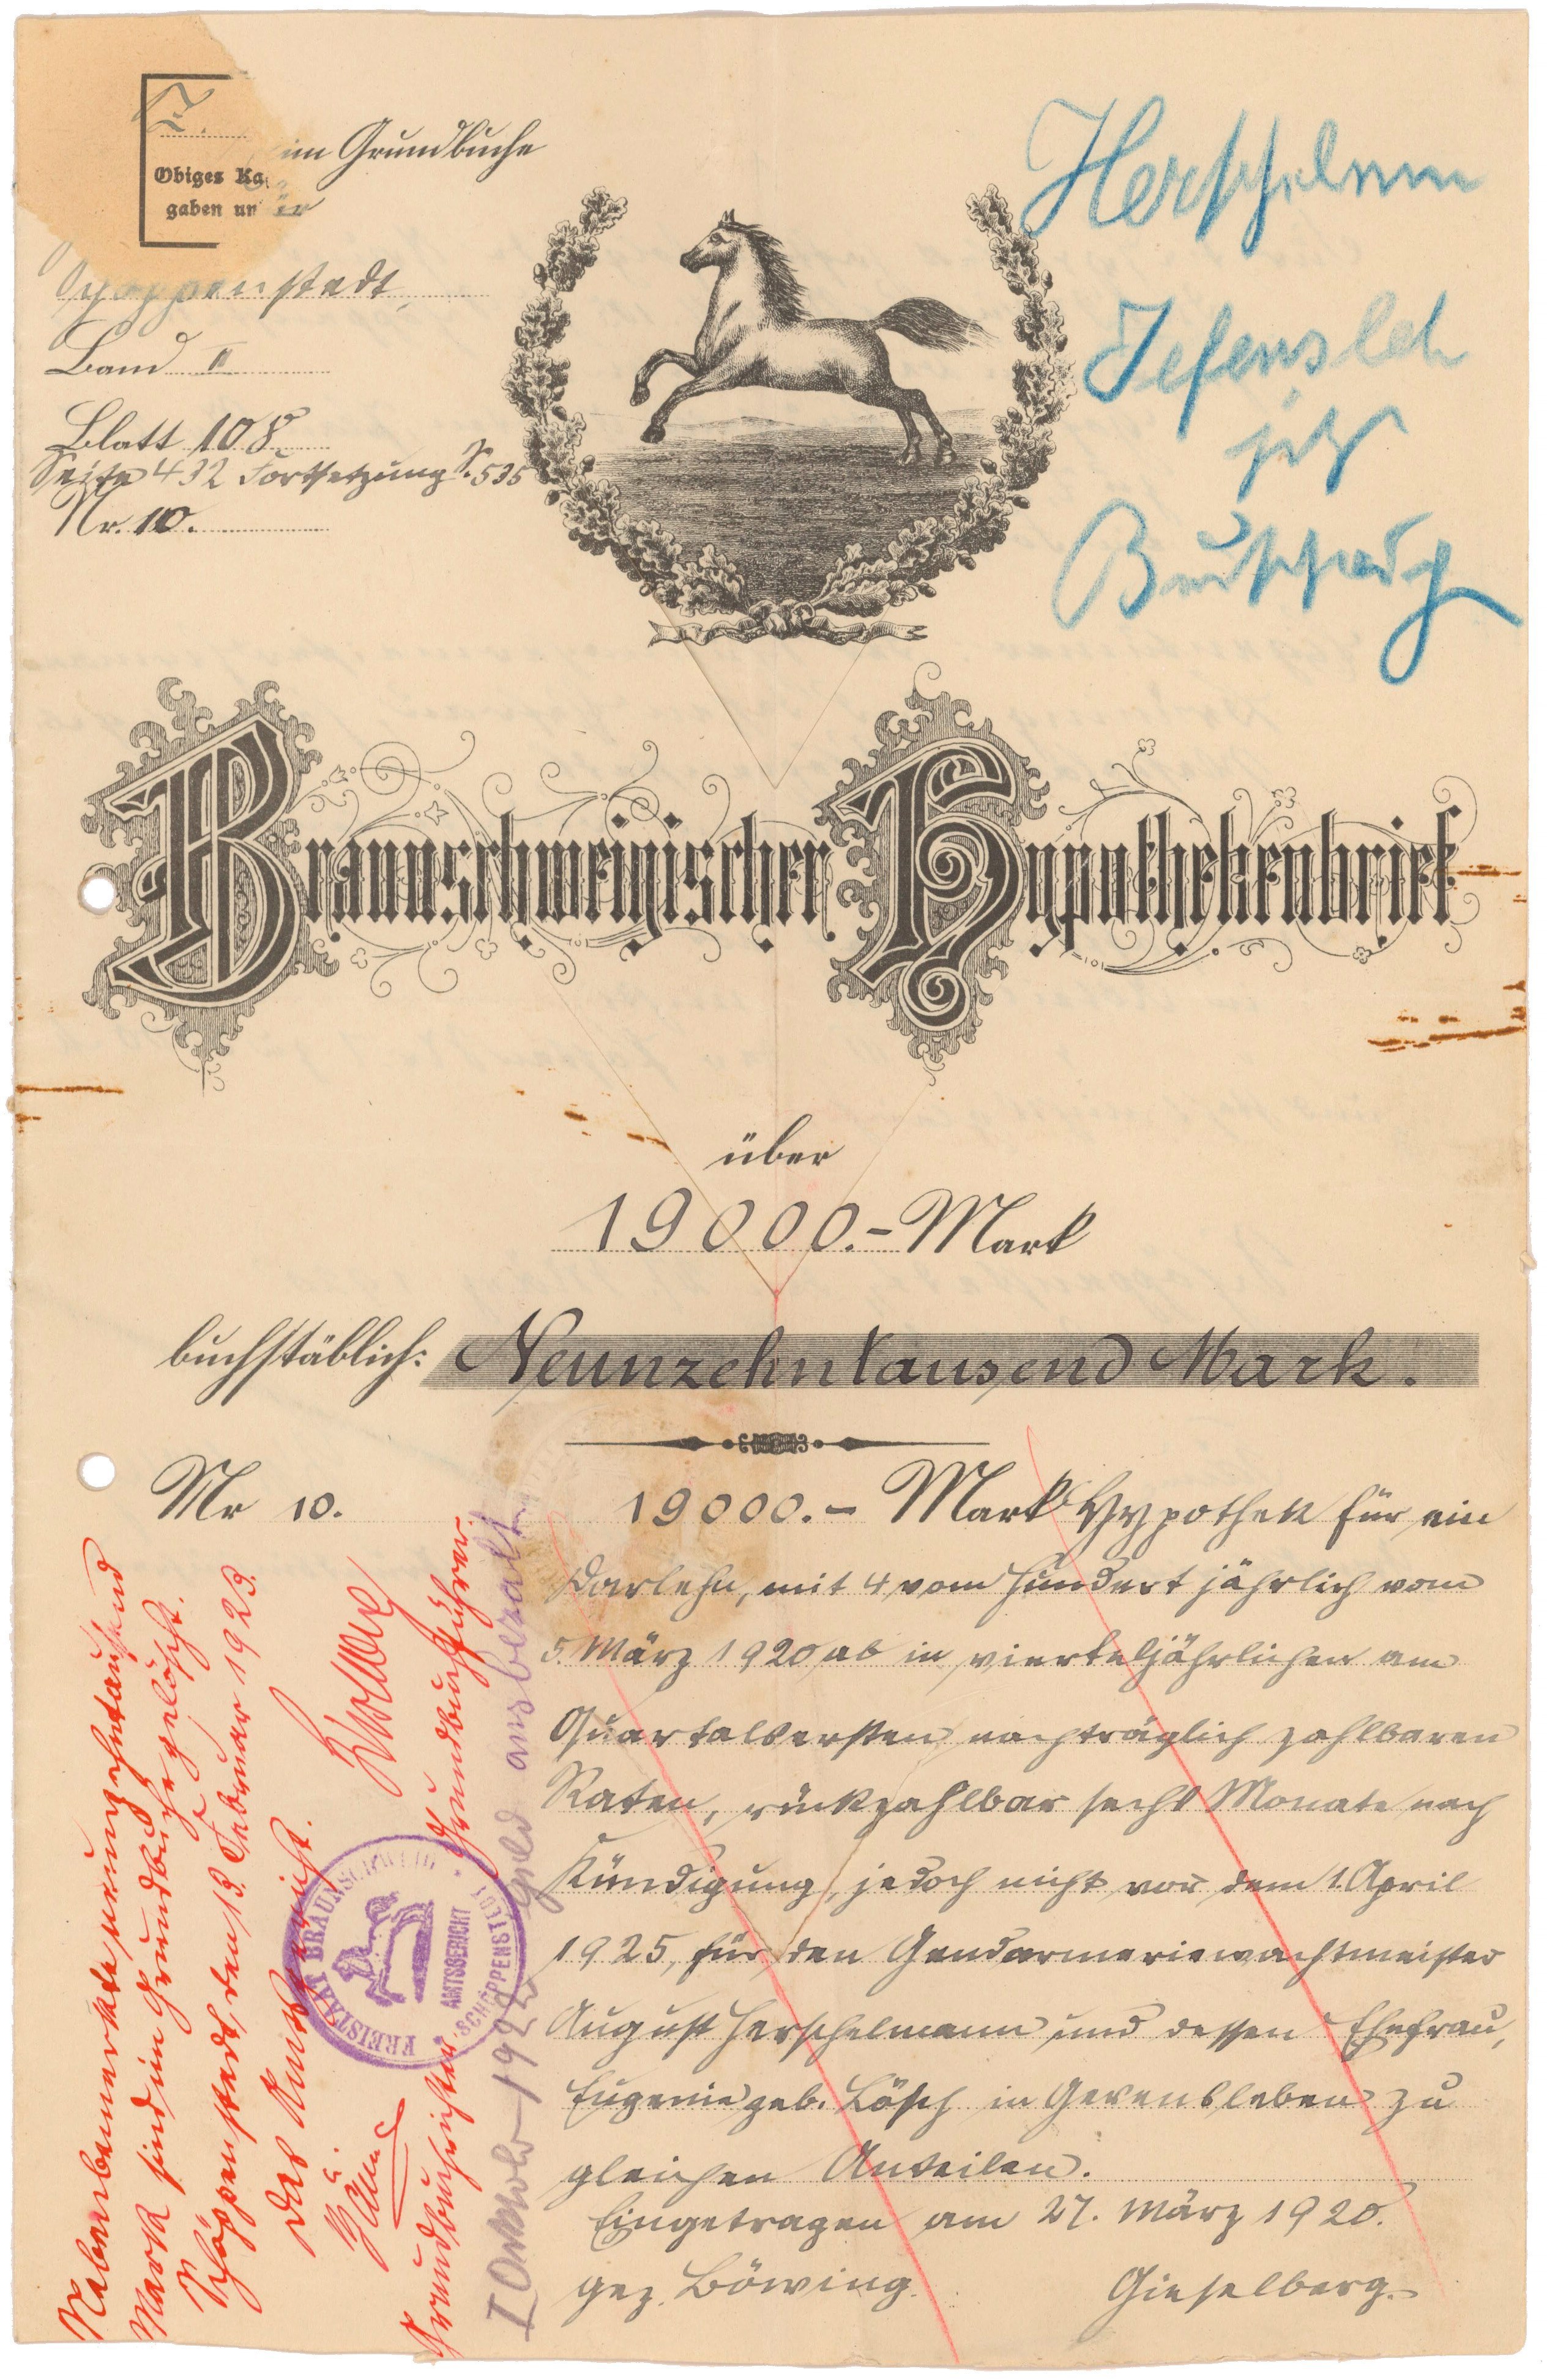 im Grundbuche
Obiges Ka
gaben un
Schöppenstedt,
Band II
Blatt 108
Seite 432 Fortsetzung S. 535
Nr. 10.
Herschelmn
jetzt
Braunschweigischer Hypothekenbrief
über
19000.- Mark
buchstäblich: Neunzehntausend Mark.
Nr 10.
19000.- Mark Hypothek für ein
Darlehn, mit 4 vom Hundert jährlich vom
5. März 1920 ab in vierteljährlichen am
Quartalsersten nachträglich zahlbaren
Raten, rückzahlbar sechs Monate nach
Kündigung, jedoch nicht vor dem 1. April
1925, für den Gendarmeriewachtmeister
August Herschelmann und dessen Ehefrau,
Eugenie geb. Lösch in Gevensleben zu
gleichen Anteilen.
Eingetragen am 27. März 1920.
gez. Böwing. Gieselberg.
Nebenbemerkte neunzehntausend
Mark sind im Grundbuche gelöscht.
Schöppenstedt, den 13. Februar 1923.
Das Amtsgericht.
Grundbuchrichter
Grundbuchführer.
FREISTAAT BRAUNSCHWEIG
AMTSGERICHT
SCHÖPPENSTEDT
I Oktob 1922 Geld ausbezalt